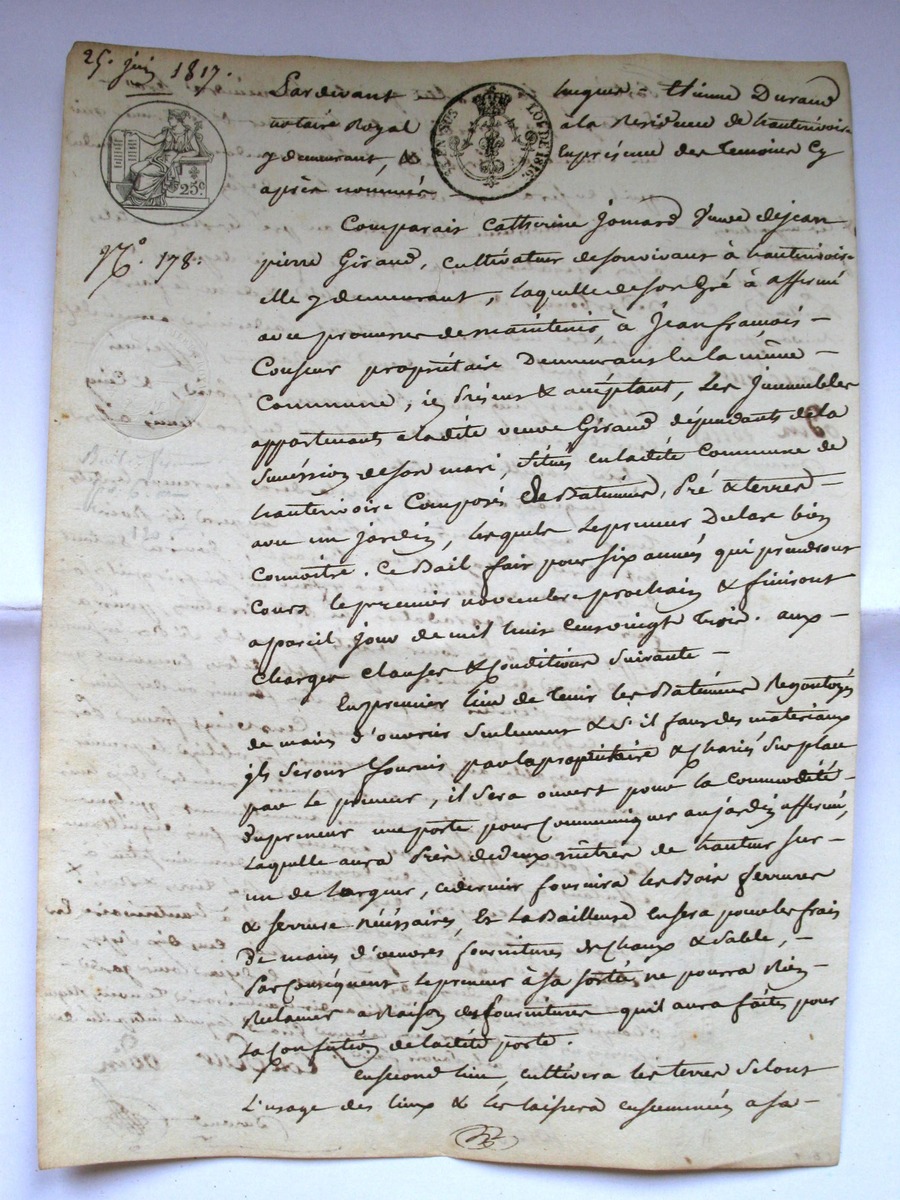 25. juin 1817.
Pardevant Jacques = Etienne Durand
notaire Royal à la Residence de hauterivoire
y demeurant, & En présence des Temoins Cy
après nommés
TIMBRE EN SUS LOI DE 1816.
25c
N.o 178.
Comparait Catherine Jomard veuve de jean
pierre Giraud, cultivateur de son vivant à hauterivoire
elle y demeurant, laquelle de son gré à affermé
avec promesse de maintenir, à Jean françois
Couseur propriétaire Demeurant en la même
Commune, ici Présent & acceptant, Les Jmmeubles
appartenants a ladite veuve Giraud dépendants de la
Sucéssion de son mari, situés en ladite Commune de
hauterivoire Composés de Batiments, Pré & terres
avec un jardin, lesquels Le preneur Declare bien
Connoitre. Ce Bail fait pour six années qui prendront
Cours le premier novembre prochain & finiront
a pareil jour de mil huit cent vingt trois. aux
Charges Clauses & Conditions Suivante
En premier lieu de Tenir les Batiments
de mains d'ouvrier Seulement & S'il faut des materiaux
ils seront fournis par la propriétaire & Chariés sur place
par le preneur, il sera ouvert pour la Commodité
du preneur une porte pour Communiquer au jardin affermé,
Laquelle aura Près de deux mêtres de hauteur sur
un de largeur, ce dernier fournira les Bois ferrures
& serrure Nécéssaires, Et La Bailleuse en sera pour les frais
De mains d'oeuvres fournitures de Chaux & Sable,
Par Conséquent Le preneur à sa sortie, ne pourra Rien
Reclamer a Raison des fournitures qu'il aura faites pour
La Confection de ladite porte.
en second lieu, cultivera les terres Selont
L'usage des lieux & les laissera ensemmencées a sa